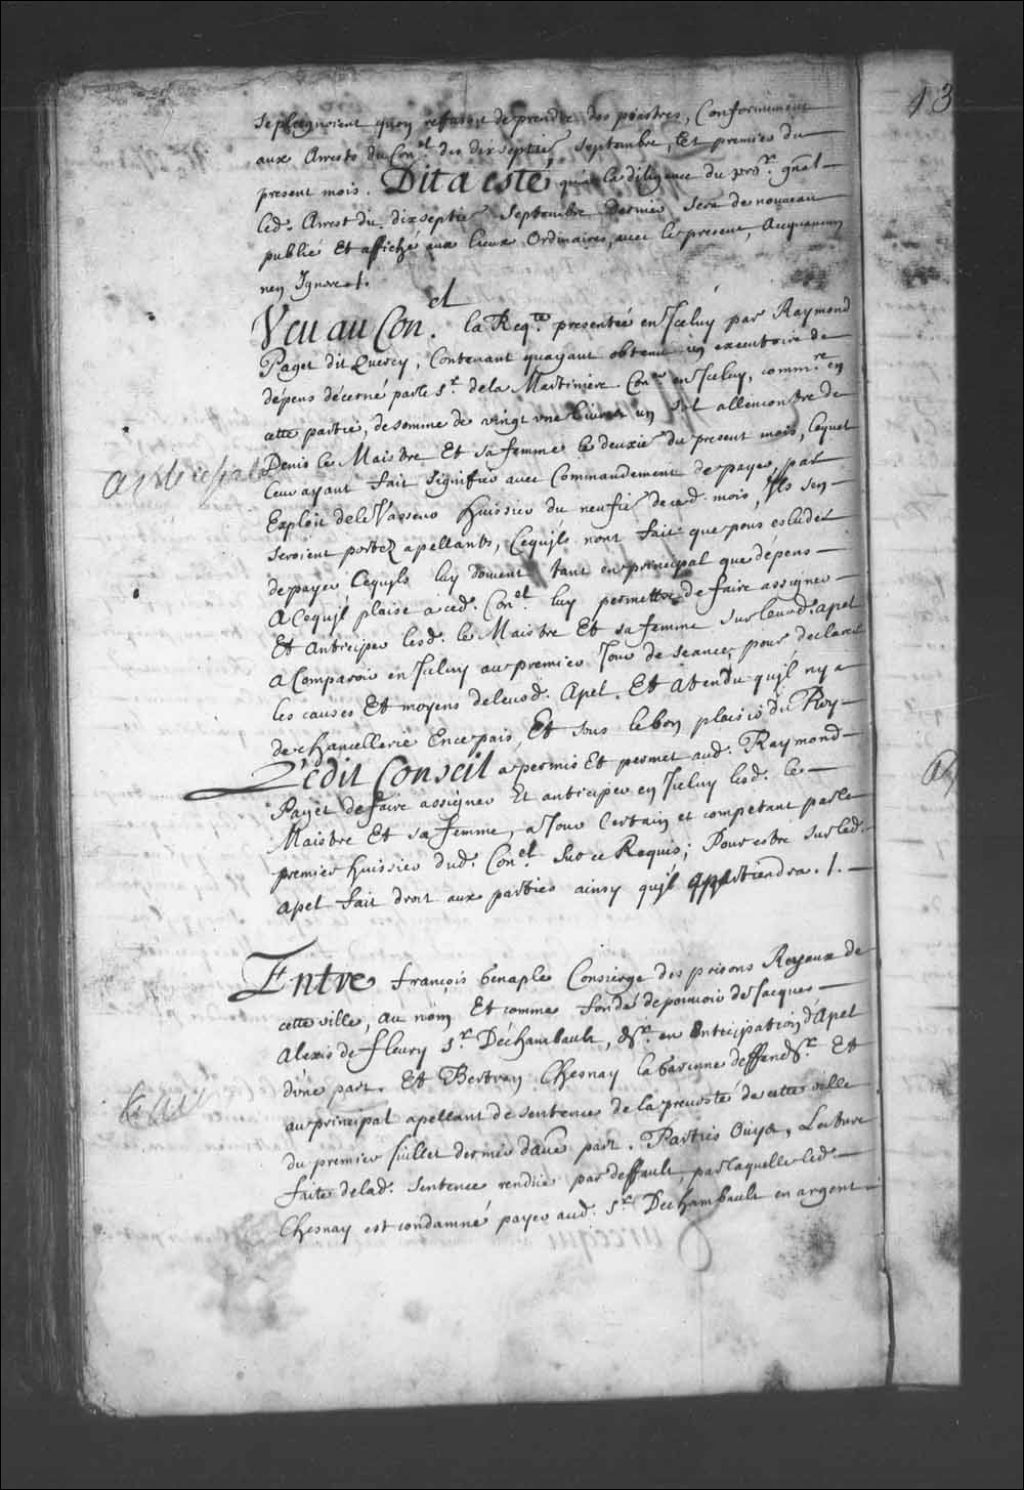 se pleignoient qu'on refusoit de prendre des piastres, Conformément
aux Arrests du Con.el des dix septie. Septembre, Et premier du
present mois. Dit a esté qu'a la diligence du pror. gnãl
led. Arrest du dixseptie. Septembre dernier Sera de nouveau
publié Et affiché aux lieux Ordinaires, avec le present, Acequaucun
nen Ignore /.
Veu au Con.el la Req.te presentée en Iceluy par Raymond
Paget dit Quercy, Contenant quayant obtenu un executoire de
dépens décerné par le S.r de la Martiniere Con.er en Iceluy, comm.re en
cette partie, de somme de vingt une livres un Sol allencontre de
Denis le Maistre Et sa femme le deuxie. du present mois, lequel
leur ayant fait Signifier avec Commandement de payer, par
Exploit de le Vasseur Huissier du neufie. de ced. mois, Ils sen
seroient portez apellants, Cequils nont fait que pour esluder
de payer Cequils luy doivent tant en principal que dépens
A Cequil plaise a ced. Con.el luy permettre de faire assigner
Et anticiper lesd. le Maistre Et sa femme Sur leurd. apel
a Comparoir en Iceluy au premier Jour de seance, pour declarer
les causes Et moyens de leurd. Apel. Et Atendu quil ny a
de chancellerie En ce pais, Et sous le bon plaisir du Roy
Ledit Conseil a permis Et permet aud. Raymond
Paget de faire assigner Et anticiper en Iceluy lesd. le
Maistre Et sa femme, a Jour Certain et competant par le
premier huissier dud. Con.el Sur ce Requis; Pour estre Sur led.
apel fait droit aux parties ainsy quil appartiendra. /.
Entre François Genaple Concierge des prisons Royaux de
cette ville, au nom Et comme fondé de pouvoir de Jacques
Alexis de fleury S.r Déchambault, d.r en Anticipation d'Apel
d'une part. Et Bertran Chesnay la Garenne deffend.r Et
au principal apellant de Sentence de la prevosté de cette ville
du premier Juillet dernier d'au.e part. Parties Ouyes, Lecture
faite de lad. Sentence rendue par deffault, par laquelle led.
Chesnay est condamné payer aud. S.r Dechambault en argent